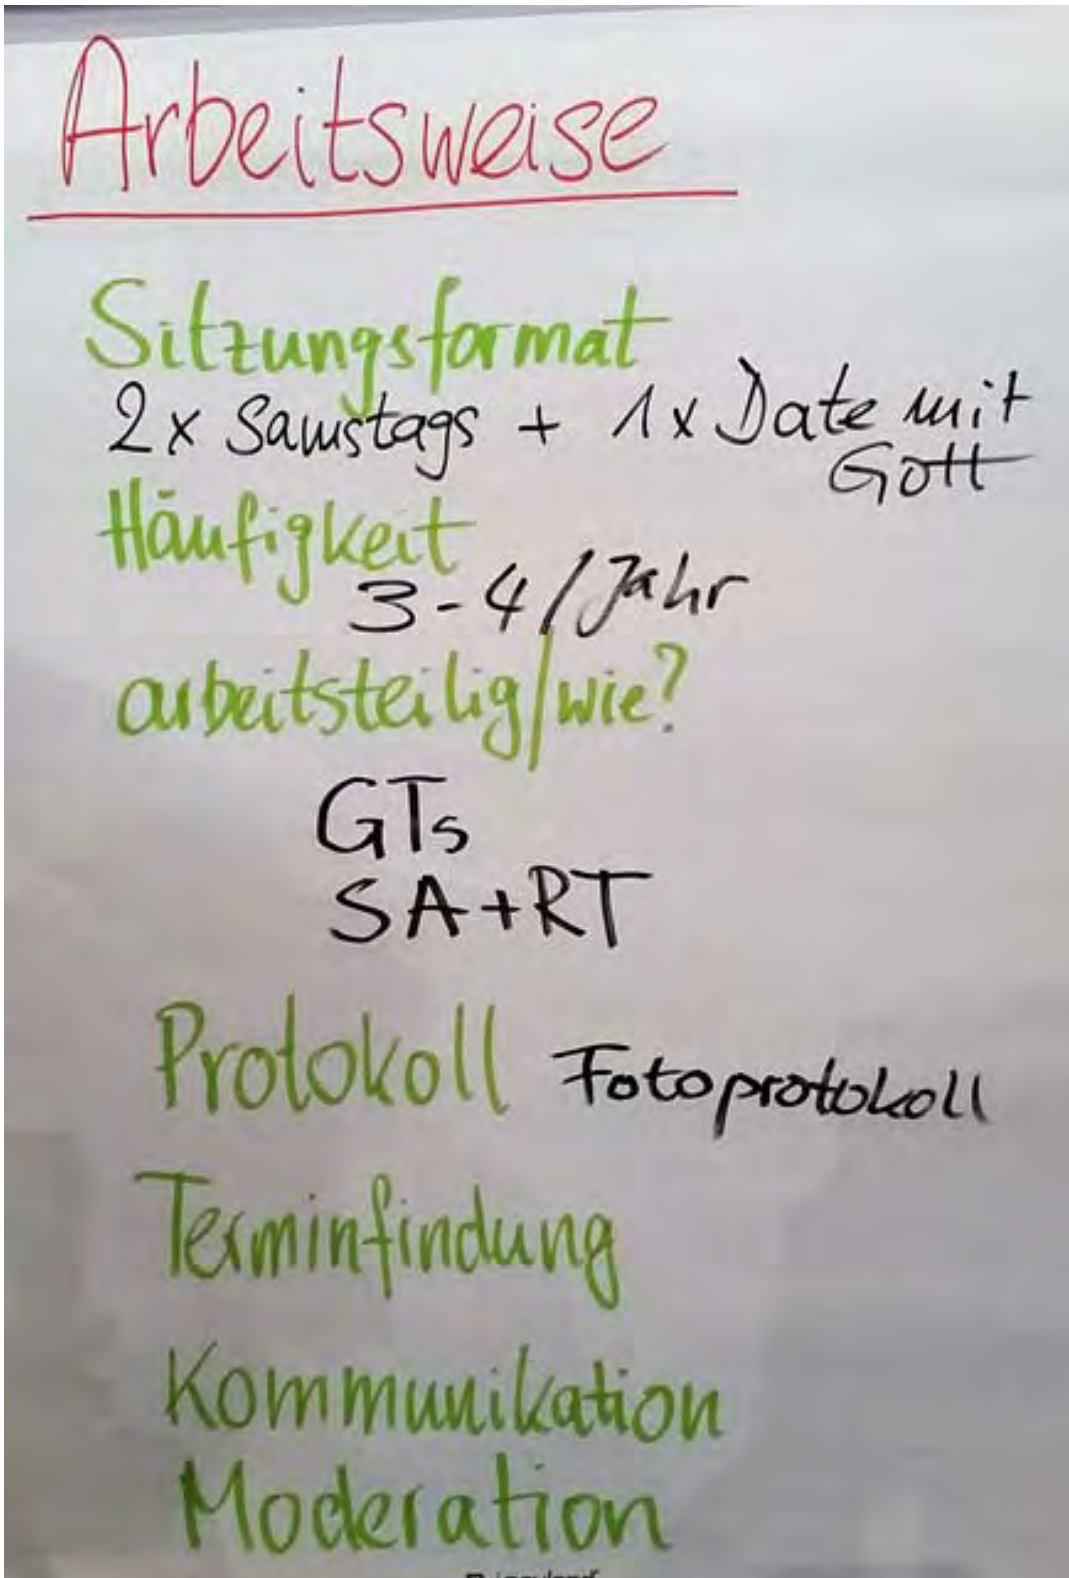 Arbeitsweise
Sitzungsformat
2x Samstags + 1x Date mit
Gott
Häufigkeit
3-4/Jahr
arbeitsteilig/wie?
GTs
SA+RT
Protokoll Fotoprotokoll
Terminfindung
Kommunikation
Moderation